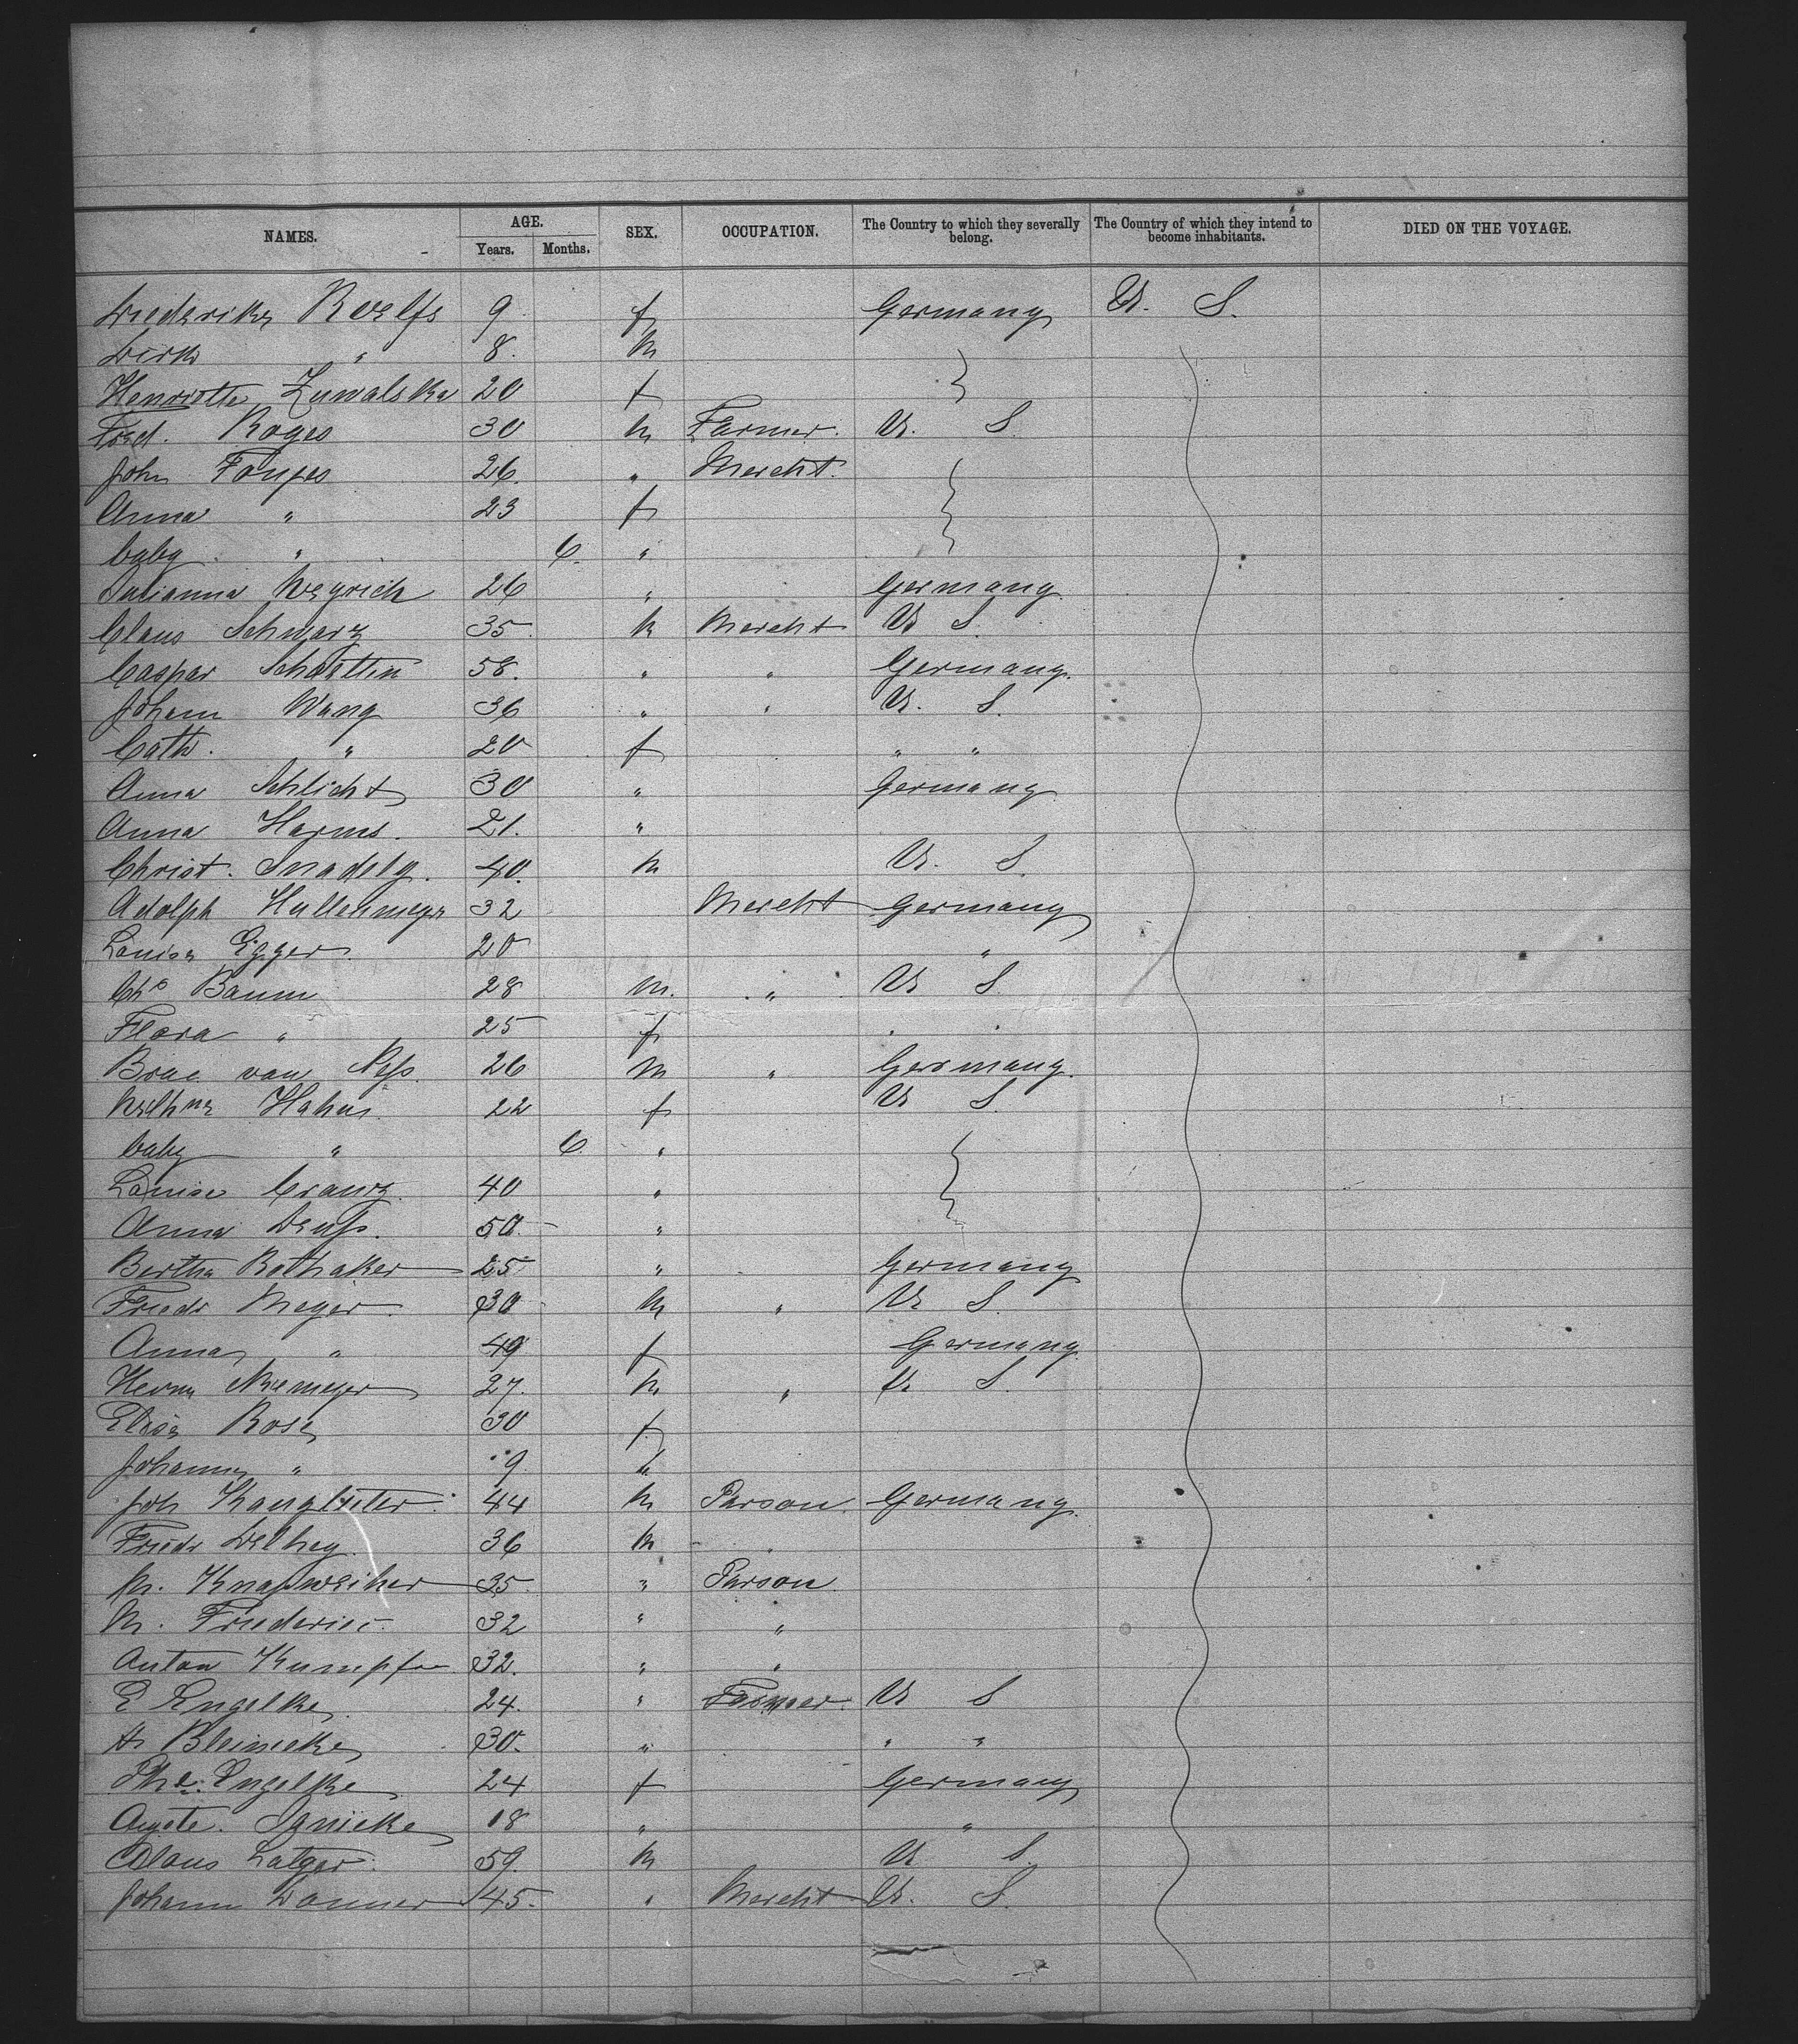 NAMES. AGE. Years. Months. SEX. OCCUPATION. The Country to which they severally belong. The Country of which they intend to become inhabitants. DIED ON THE VOYAGE.
Diederike Roelfs 9 f Germany U. S.
Dirk " 8. m
Henriette Zuwalska 20 f
Fred. Roges 30 m Farmer. U. S.
John Tonjes 26. " Mercht.
Anna " 23 f
baby " 6. "
Julianna Weyrich 26 " Germany.
Claus Schwarz 35. m Mercht U S.
Caspar Schoettin 58. " " Germany.
Johann Wang 36 " " U. S.
Cath. " 20 f " "
Anna Schlicht 30 " Germany
Anna Harms. 21. "
Christ. 40. m U. S.
Adolph Hullenmeyer 32 Mercht Germany
Louisa Egger 20 "
Chs Baum 28 m. " U S.
Flora " 25 f " "
van Ness. 26 m " Germany.
Hahn 22 f U S.
baby " 6 "
Louise Cranz. 40 "
Anna 50. "
Bertha Rothaker 25 " Germany
Friedr Meyer 30 m " U S.
Anna " 49 f Germany.
Herm Niemeyer 27. m " U. S.
Elise Rose 30 f
Johanna " 9
Joh 44 m Parson Germany.
Friedr Delhey. 36 m
M. Knapweiher 35. " Parson
M. Friederici 32 " "
Anton Kumpf 32. " "
E Engelke 24. " Farmer. U S
H. Bleinecke 30. " " "
Engelke 24 f Germany
Augste. Janicke 18 " "
Claus 59. m U S.
Johann Donner 45. " Mercht U. S.